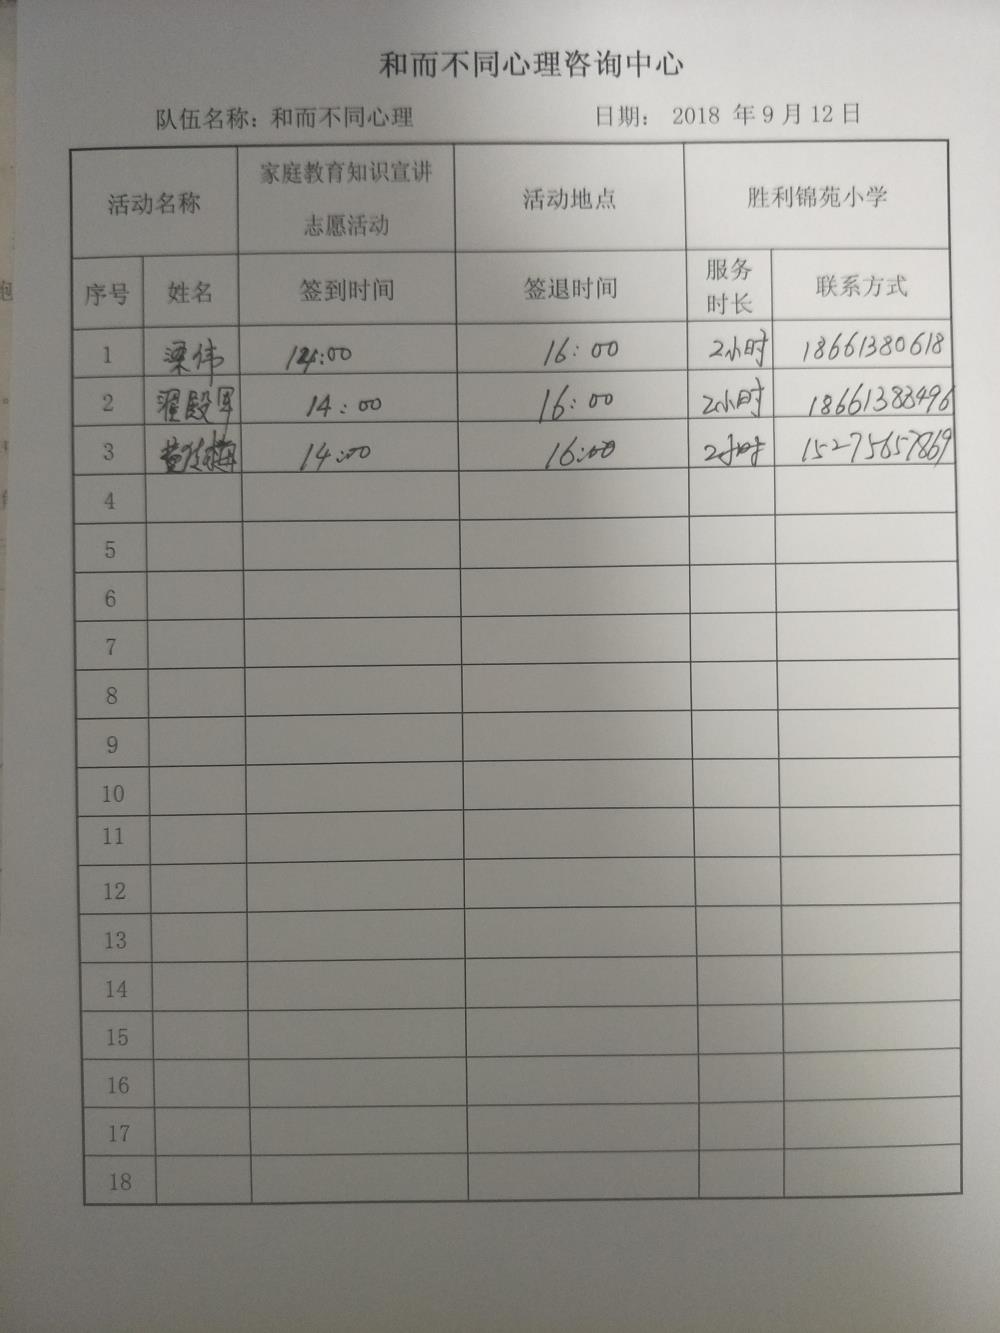 和而不同心理咨询中心
队伍名称：和而不同心理 日期： 2018 年 9 月 12 日
活动名称 家庭教育知识宣讲志愿活动 活动地点 胜利锦苑小学
序号 姓名 签到时间 签退时间 服务时长 联系方式
1 梁伟 14:00 16:00 2小时 18661380618
2 14:00 16:00 2小时 18661383496
3 14:00 16:00 2小时 15275657869
4
5
6
7
8
9
10
11
12
13
14
15
16
17
18